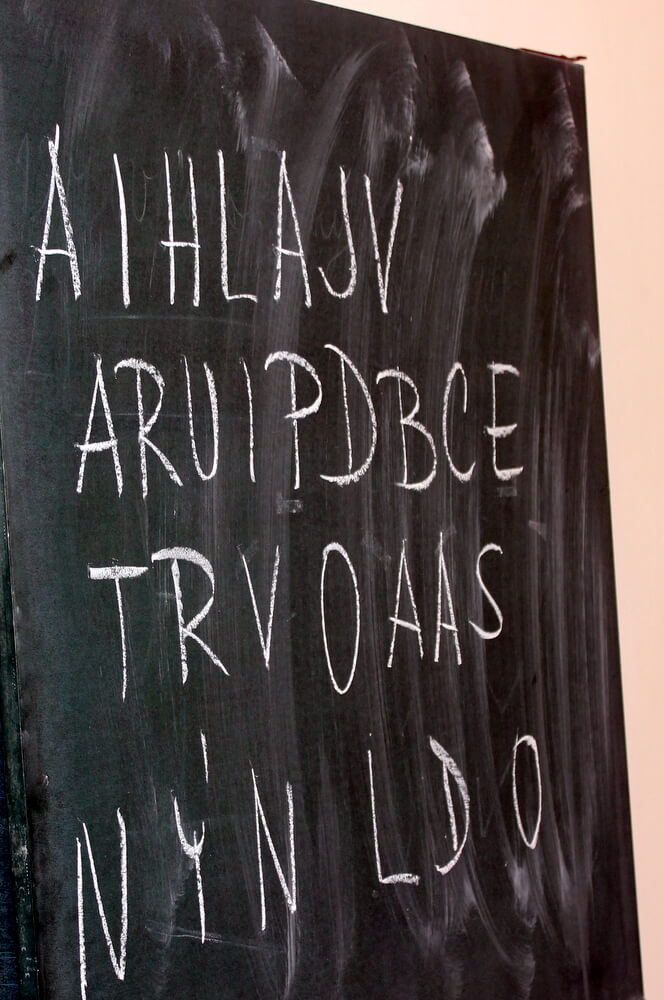 AIHLAJV
ARUIPDBCE
TRVOAAS
NÝN LDO